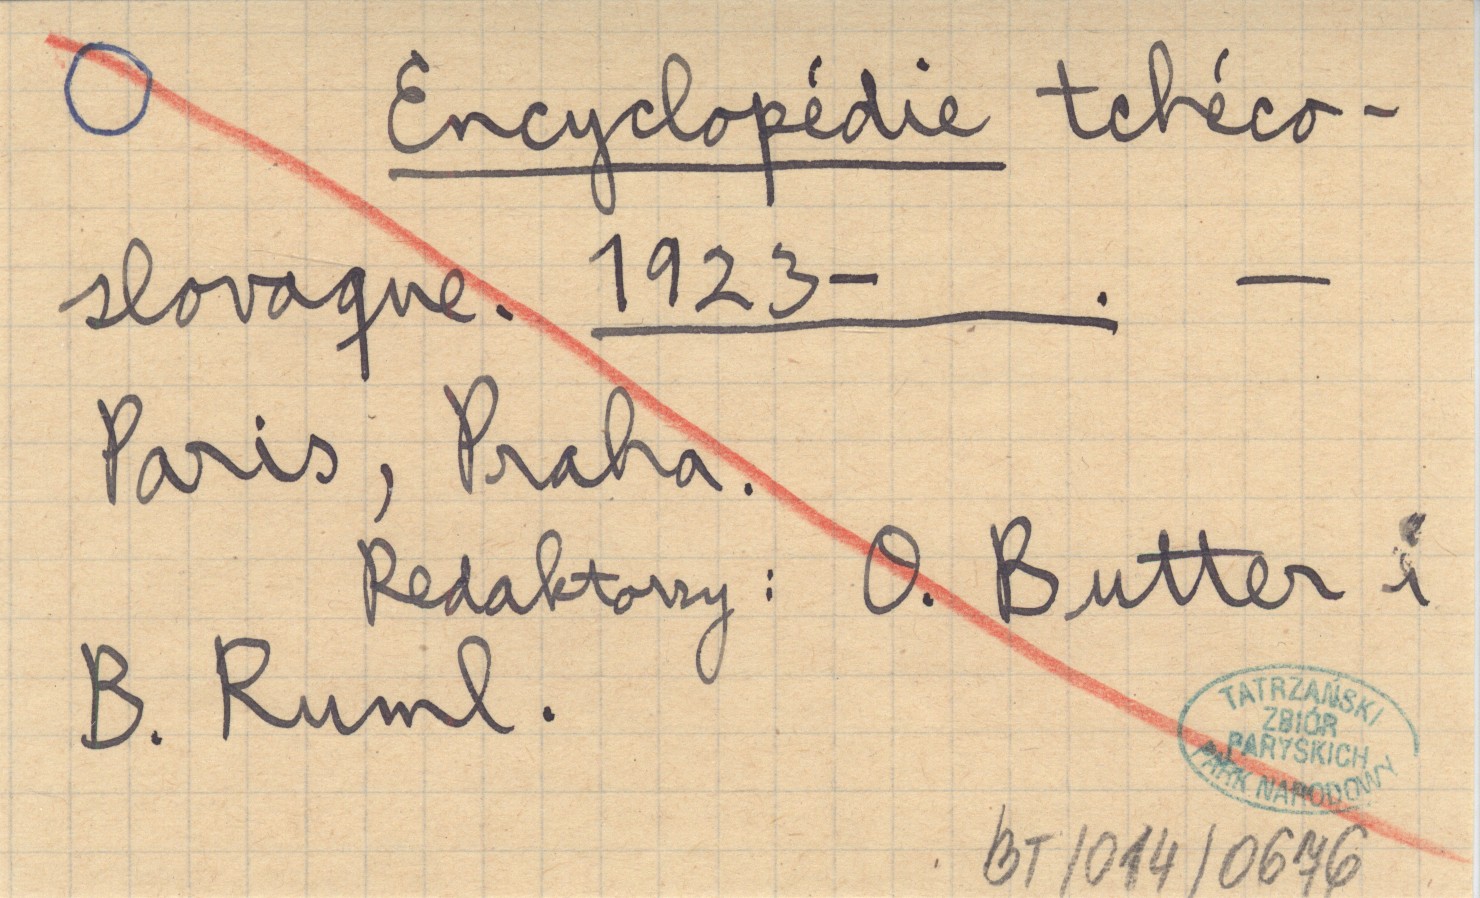 Encyclopédie tchéco-
slovaque. 1923- . —
Paris, Praha.
Redaktorzy: O. Butter i
B. Ruml.
TATRZAŃSKI
ZBIÓR
PARYSKICH
PARK NARODOWY
BT/014/0676